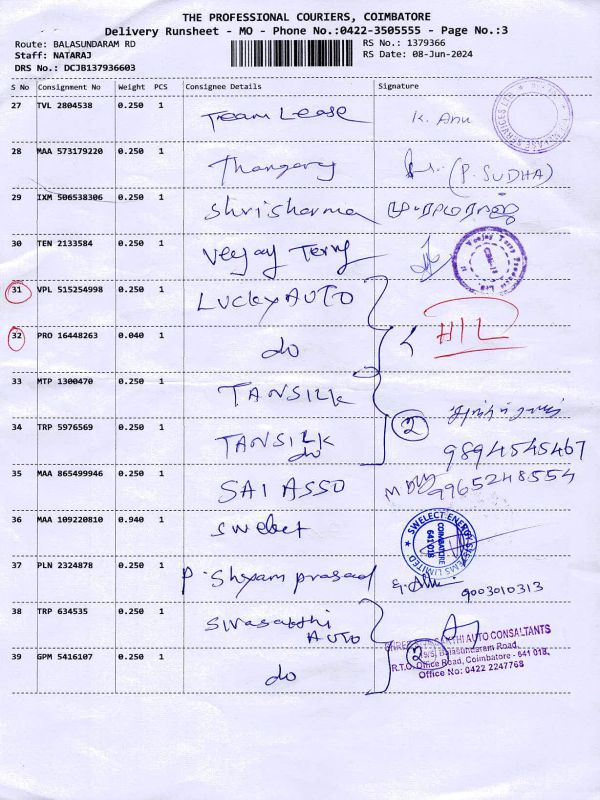 THE PROFESSIONAL COURIERS, COIMBATORE
Delivery Runsheet - MO - Phone No.:0422-3505555 - Page No.:3
Route: BALASUNDARAM RD
RS No.: 1379366
Staff: NATARAJ
RS Date: 08-Jun-2024
DRS No.: DCJB137936603
S No Consignment No Weight PCS Consignee Details Signature
27 TVL 2804538 0.250 1 Team Lease K. Anu
28 MAA 573179220 0.250 1 (P. SUDHA)
29 IXM 506538306 0.250 1 Shrisharma
30 TEN 2133584 0.250 1 Veejay Terry
31 VPL 515254998 0.250 1 Lucky AUTO
HIL
32 PRO 16448263 0.040 1 do
33 MTP 1300470 0.250 1 TANSILK
34 TRP 5976569 0.250 1 TANSILK 2
do
9894545467
35 MAA 865499946 0.250 1 SAI ASSO 9965248554
36 MAA 109220810 0.940 1 Swelect
SWELECT ENERGY SYSTEMS LIMITED
COIMBATORE
641 018
37 PLN 2324878 0.250 1 P. Shyam prasad 9003010313
38 TRP 634535 0.250 1 Sivasakthi
AUTO
AUTO CONSULTANTS
Balasundaram Road,
R.T.O. Office Road, Coimbatore - 641 018,
Office No: 0422 2247768
39 GPM 5416107 0.250 1 do 2